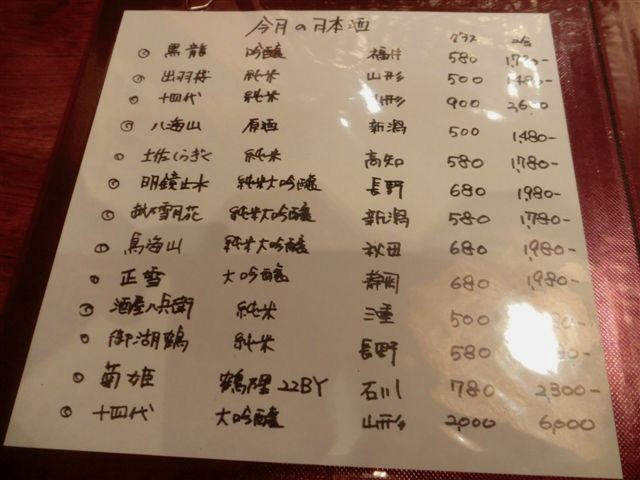 今月の日本酒
グラス 二合
黒龍 吟醸 福井 580 1,780-
出羽桜 純米 山形 500 1,480-
十四代 純米 山形 900 2,600
八海山 原酒 新潟 500 1,480-
土佐しらぎく 純米 高知 580 1,780-
明鏡止水 純米大吟醸 長野 680 1,980-
越乃雪月花 純米大吟醸 新潟 580 1,780-
鳥海山 純米大吟醸 秋田 680 1,980-
正雪 大吟醸 静岡 680 1,980-
酒屋八兵衛 純米 三重 500
御湖鶴 純米 長野 580
菊姫 鶴 22BY 石川 780 2,300-
十四代 大吟醸 山形 2,000 6,000